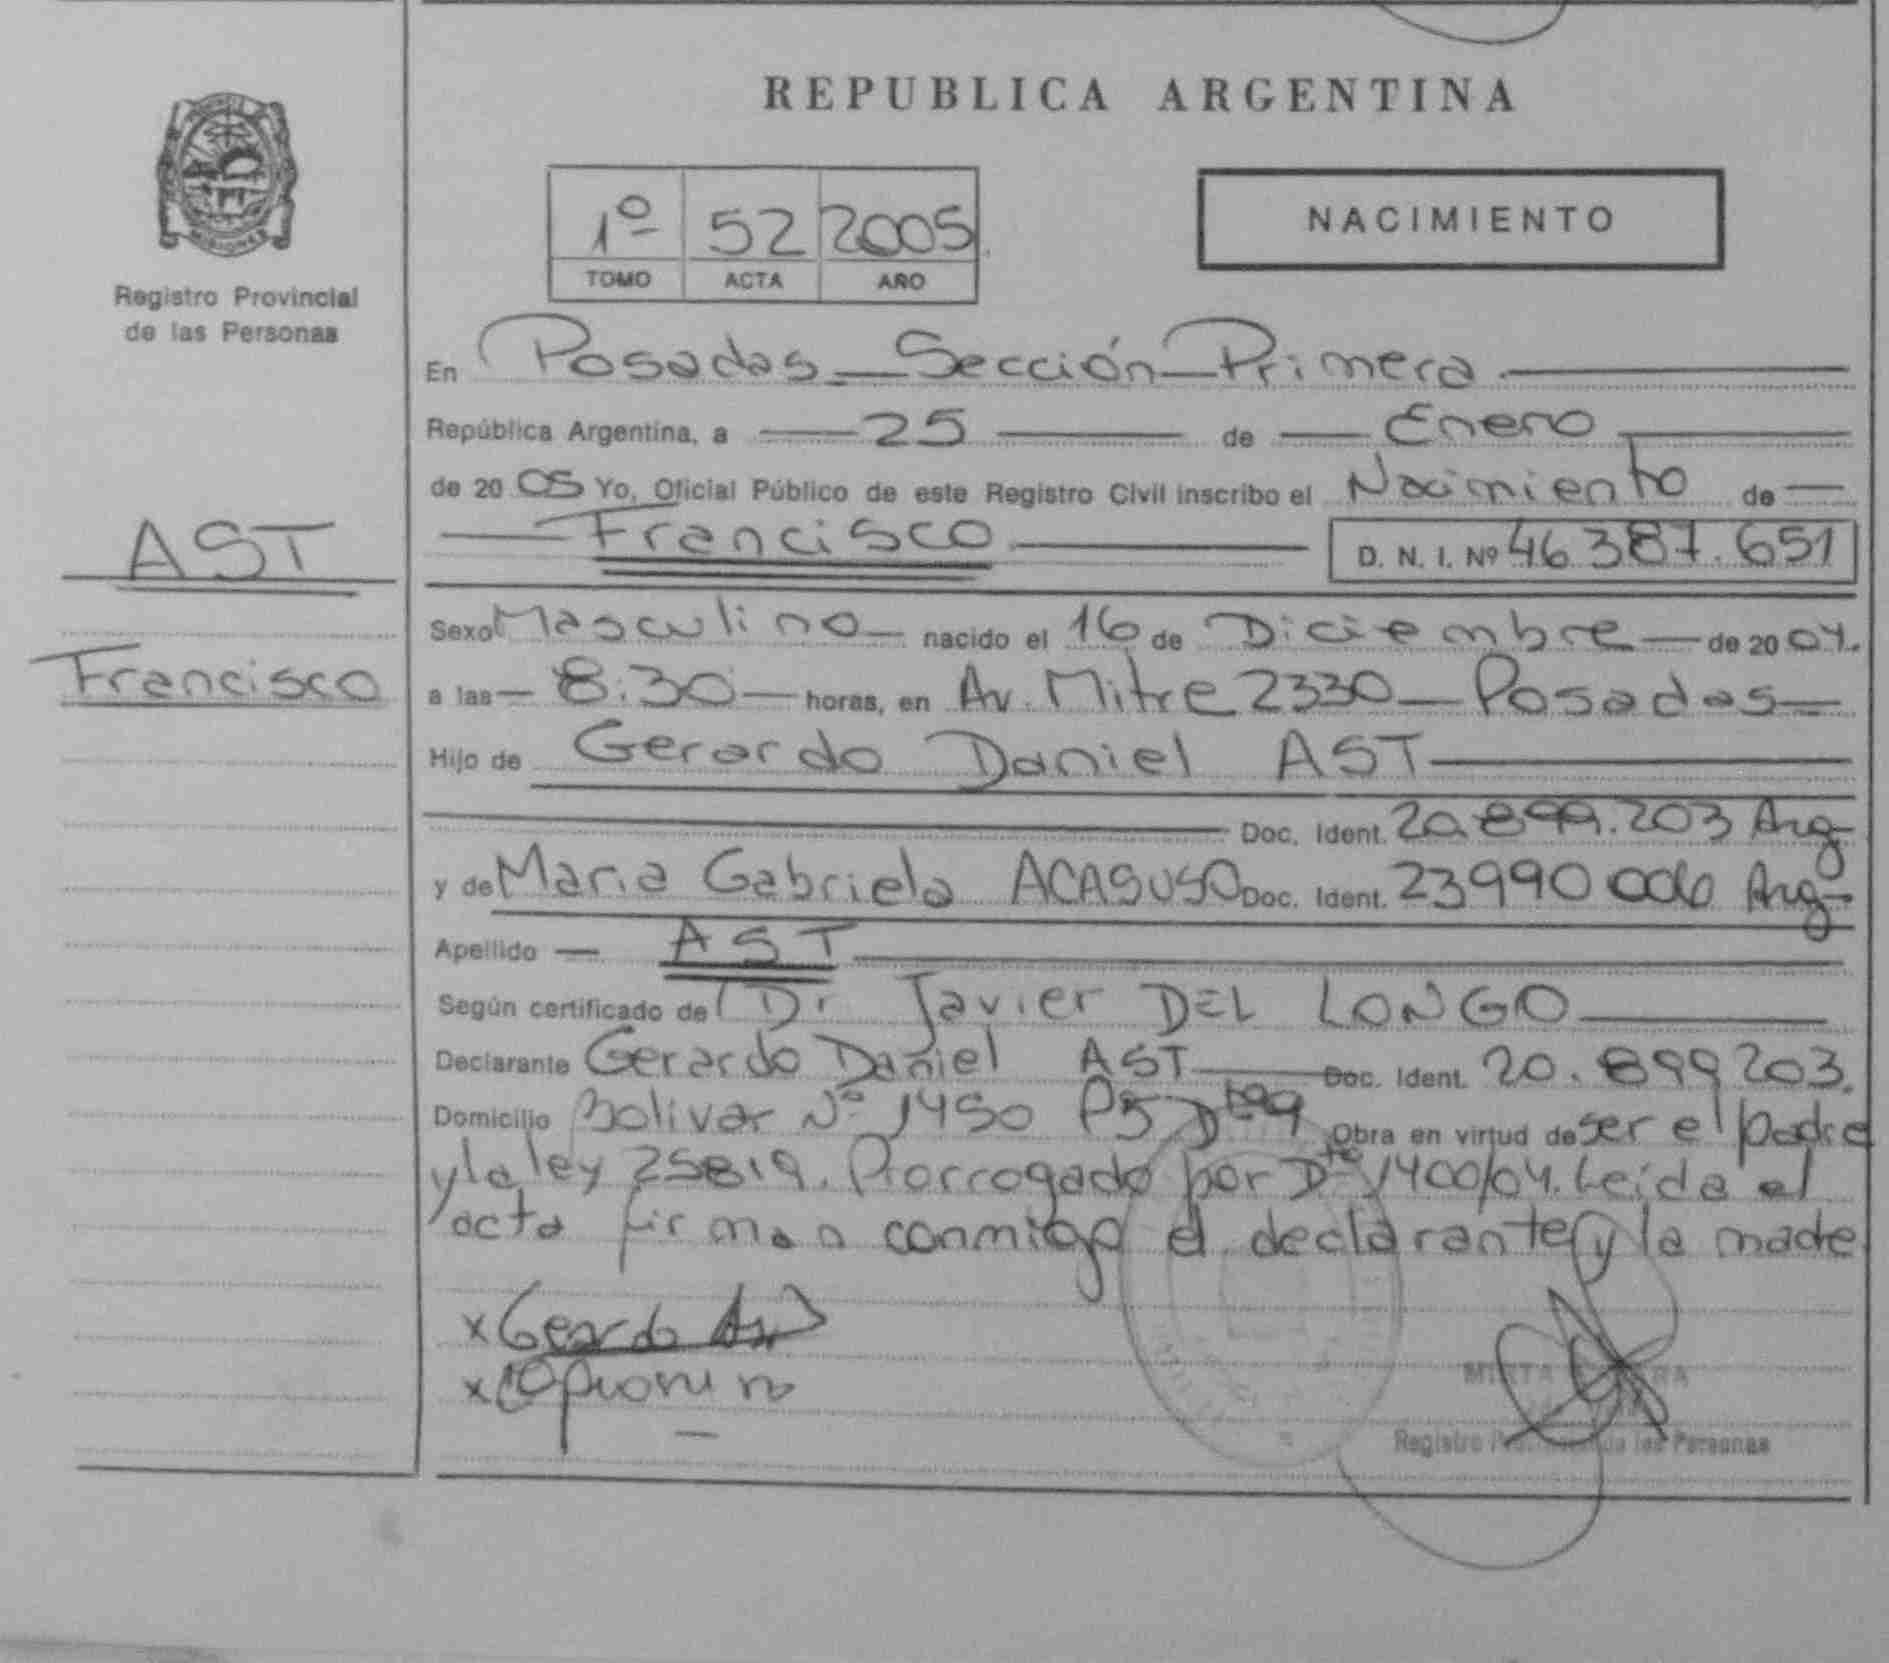 REPUBLICA ARGENTINA
MISIONES
Registro Provincial
de las Personas
1º 52 2005
TOMO ACTA AÑO
NACIMIENTO
En Posadas Sección Primera
República Argentina, a 25 de Enero
de 20 05 Yo, Oficial Público de este Registro Civil inscribo el Nacimiento de
Francisco D. N. I. Nº 46.387.651
AST
Francisco
Sexo Masculino nacido el 16 de Diciembre de 20 04.
a las 8:30 horas, en Av. Mitre 2330 Posadas
Hijo de Gerardo Daniel AST
Doc. Ident. 20.899.203 Arg
y de Maria Gabriela ACASUSO Doc. Ident. 23990 006 Arg
Apellido AST
Según certificado de Dr Javier DEL LONGO
Declarante Gerardo Daniel AST Doc. Ident. 20.899 203.
Domicilio Bolivar Nº 1450 P5 Obra en virtud de ser el padre
y la ley 25819. Prorrogado por Dto 1400/04. Leída el
acta firman conmigo el declarante y la madre
x Gerardo Ast
x
MIRTA
Registro Provincial de las Personas